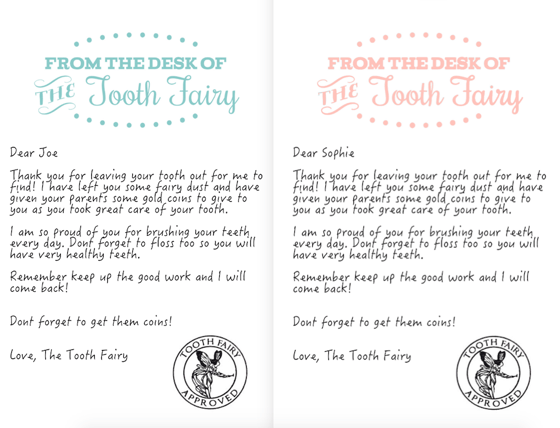 FROM THE DESK OF
THE Tooth Fairy
Dear Joe
Thank you for leaving your tooth out for me to
find! I have left you some fairy dust and have
given your parents some gold coins to give to
you as you took great care of your tooth.
I am so proud of you for brushing your teeth
every day. Dont forget to floss too so you will
have very healthy teeth.
Remember keep up the good work and I will
come back!
Dont forget to get them coins!
Love, The Tooth Fairy
TOOTH FAIRY
APPROVED
FROM THE DESK OF
THE Tooth Fairy
Dear Sophie
Thank you for leaving your tooth out for me to
find! I have left you some fairy dust and have
given your parents some gold coins to give to
you as you took great care of your tooth.
I am so proud of you for brushing your teeth
every day. Dont forget to floss too so you will
have very healthy teeth.
Remember keep up the good work and I will
come back!
Dont forget to get them coins!
Love, The Tooth Fairy
TOOTH FAIRY
APPROVED